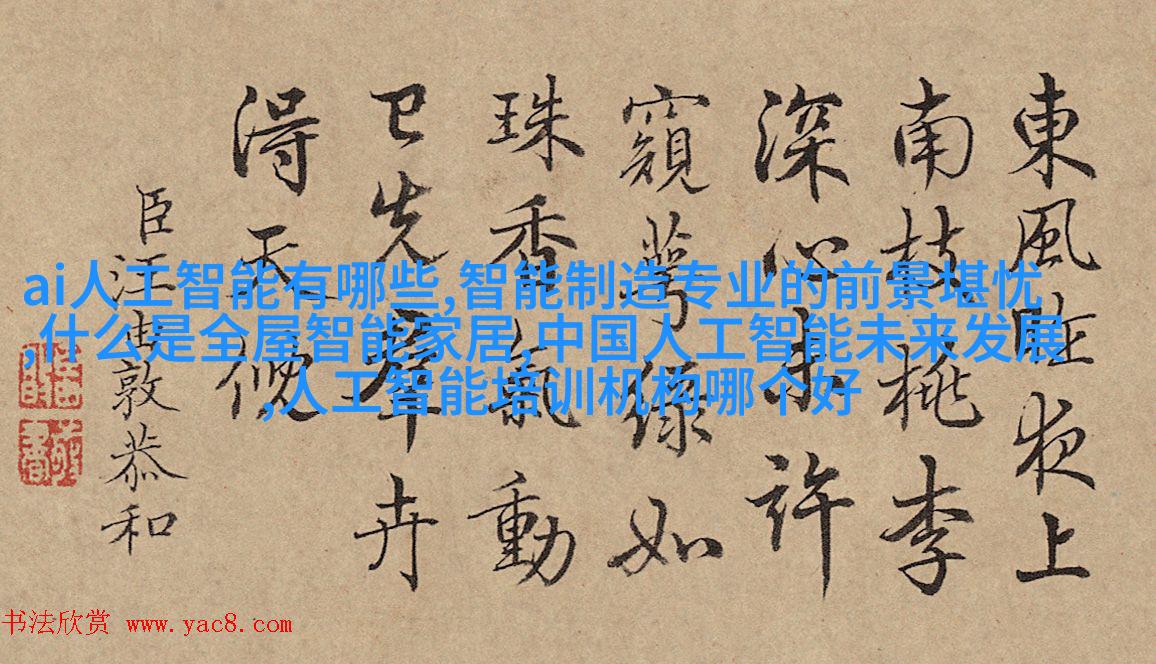 東風昨夜上
南枝桃李
深心未許
窺萼綠如
珠香氣動
已先羣卉
得天倪
臣汪由敦恭和
ai人工智能有哪些,智能制造专业的前景堪忧
,什么是全屋智能家居,中国人工智能未来发展
,人工智能培训机构哪个好
书法欣赏 www.yac8.com